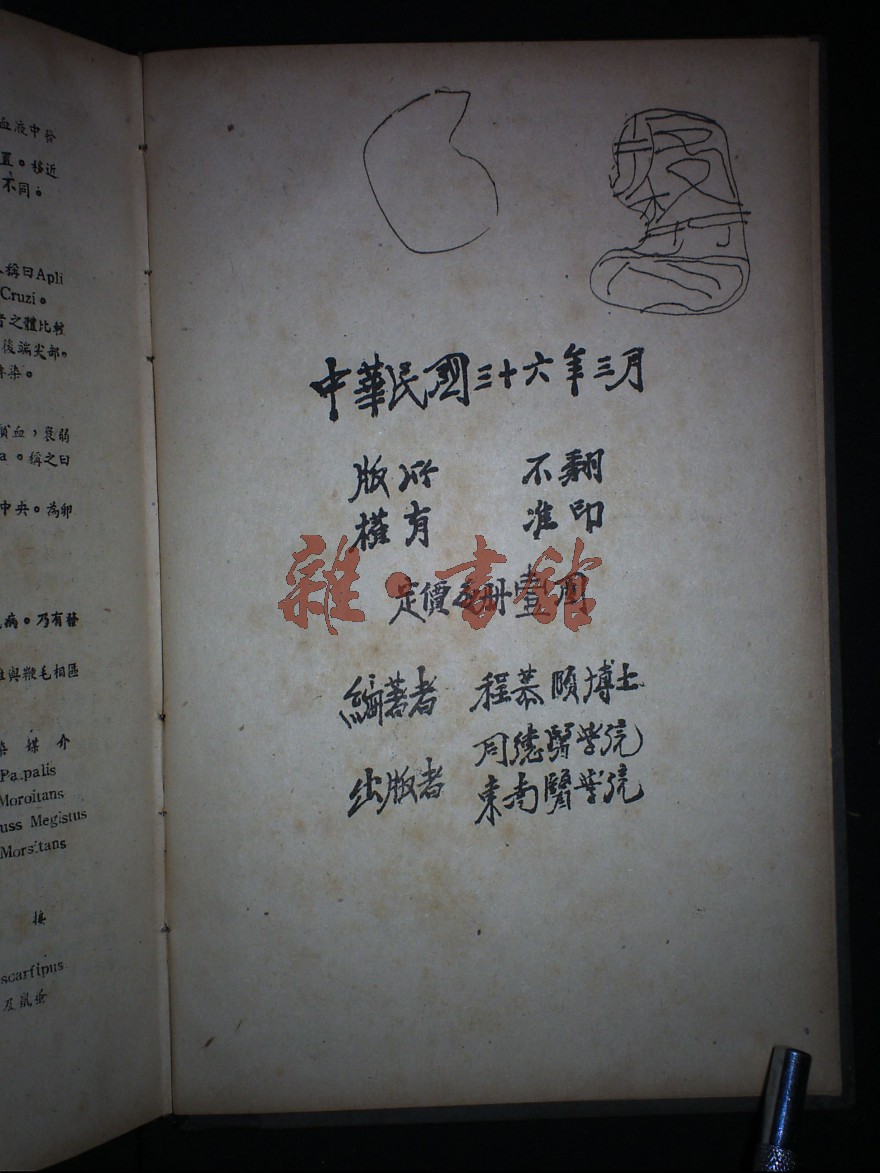 血液中發
置。移近
不同。
稱曰Apli
Cruzi。
者之體比較
後端尖部。
染。
血，衰弱
a。稱之曰
中央。為卵
病。乃有發
與鞭毛相區
染 媒 介
Pa.palis
Moroitans
uss Megistus
Morsitans
接
scarfipus
及鼠
中華民國三十六年三月
版所 不翻
權有 准印
雜·書館
定價每册壹圓
編著者 程慕頤博士
同德醫學院
出版者
東南醫學院